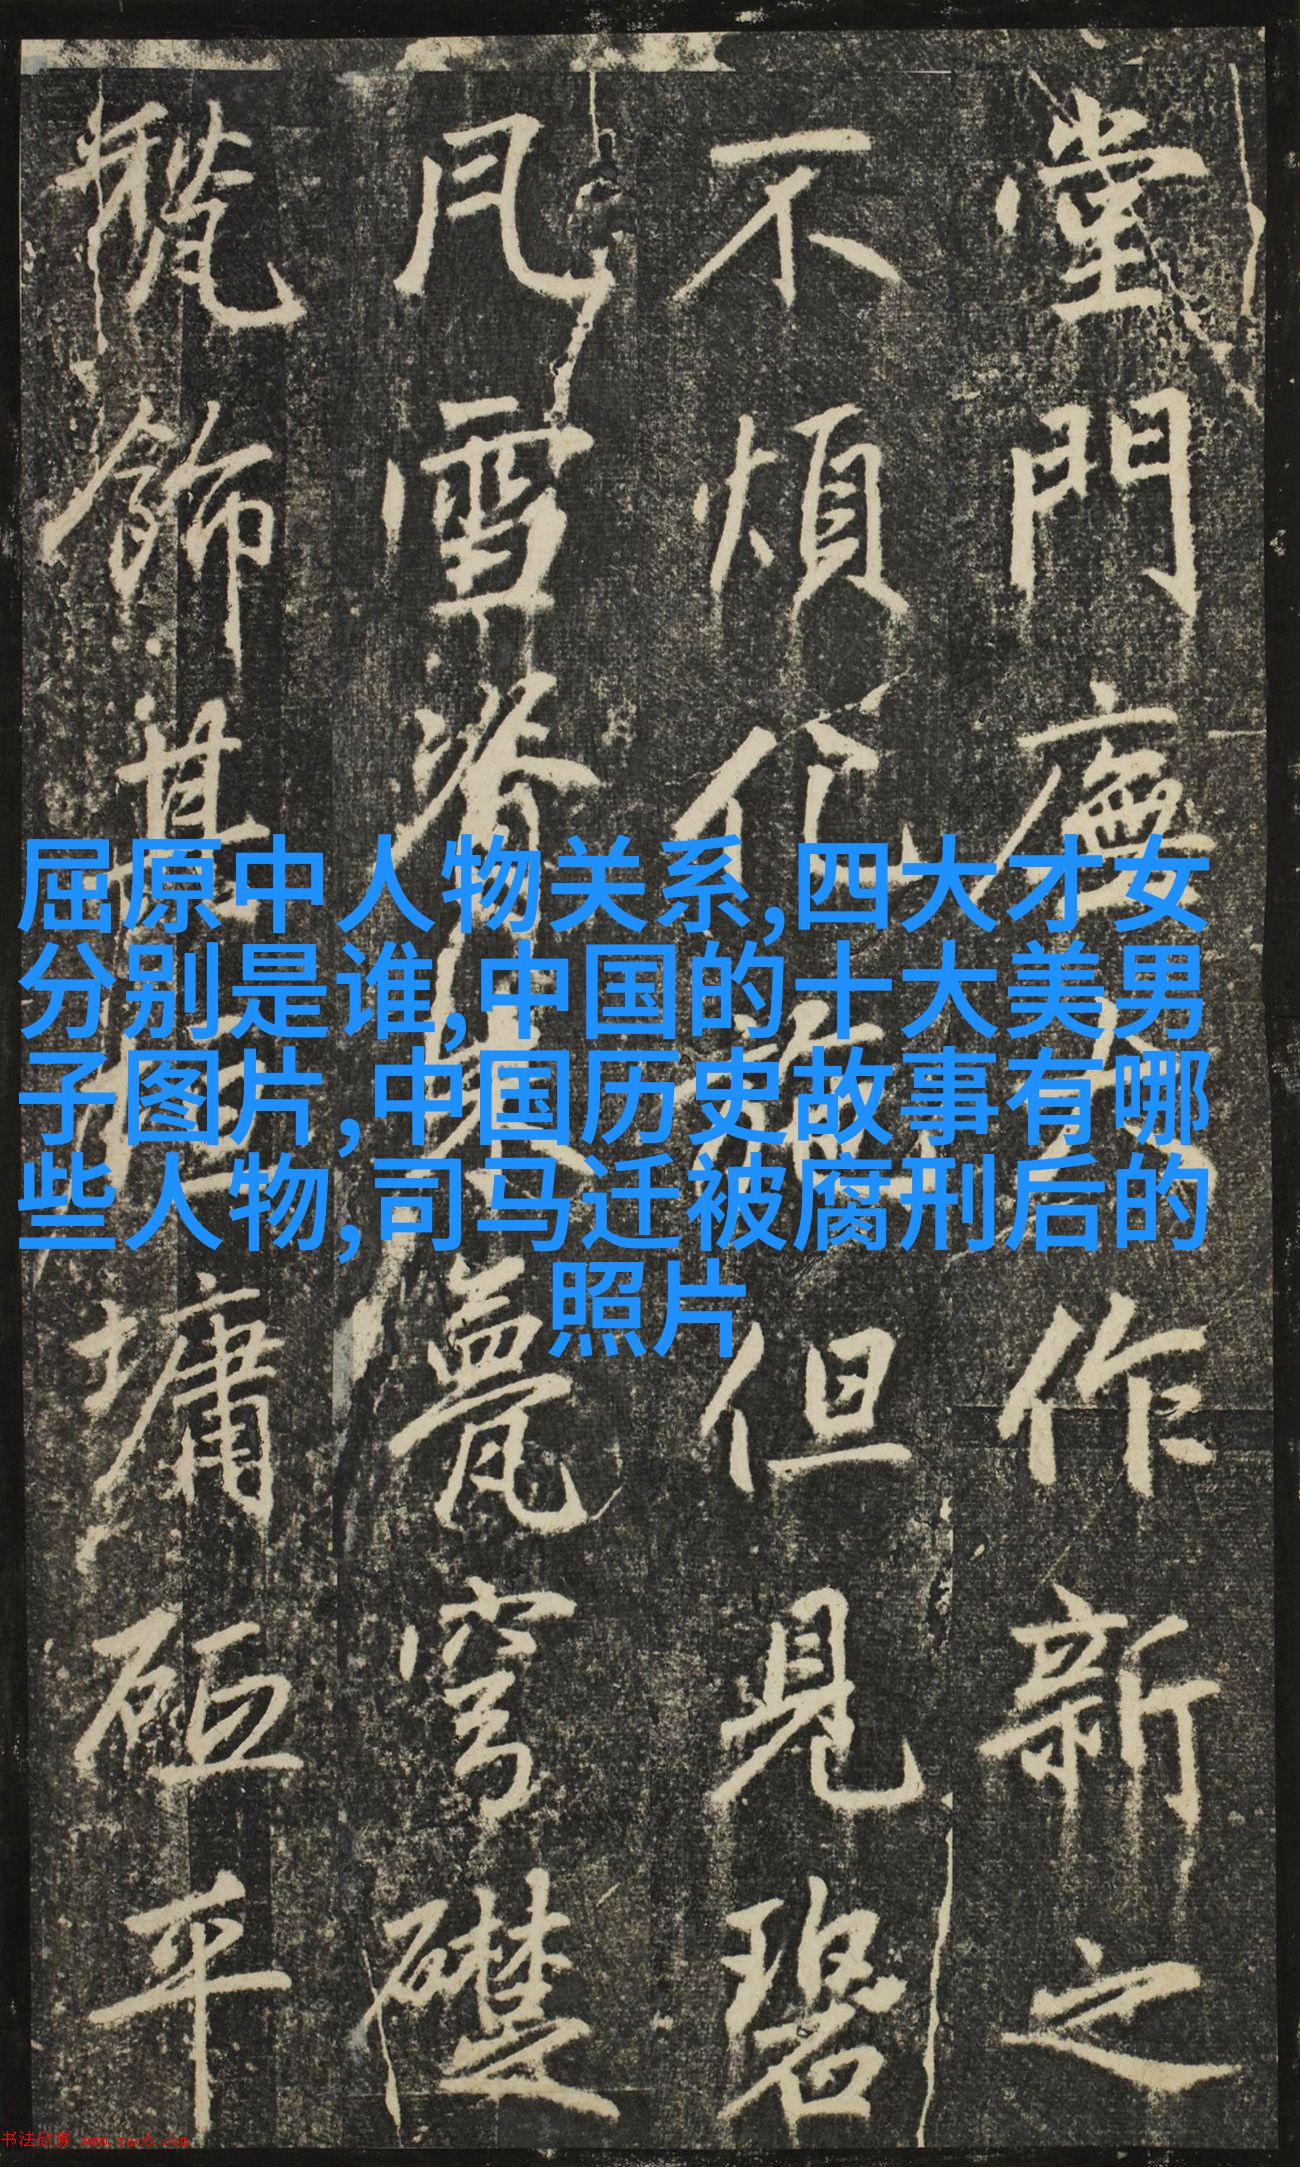 堂門廡交作新之
不煩化但見碧
凡雪脊瓮穹礎
甃飾甚墉砠平
屈原中人物关系,四大才女
分别是谁,中国的十大美男
子图片,中国历史故事有哪
些人物,司马迁被腐刑后的
照片
书法欣赏 www.yac8.com